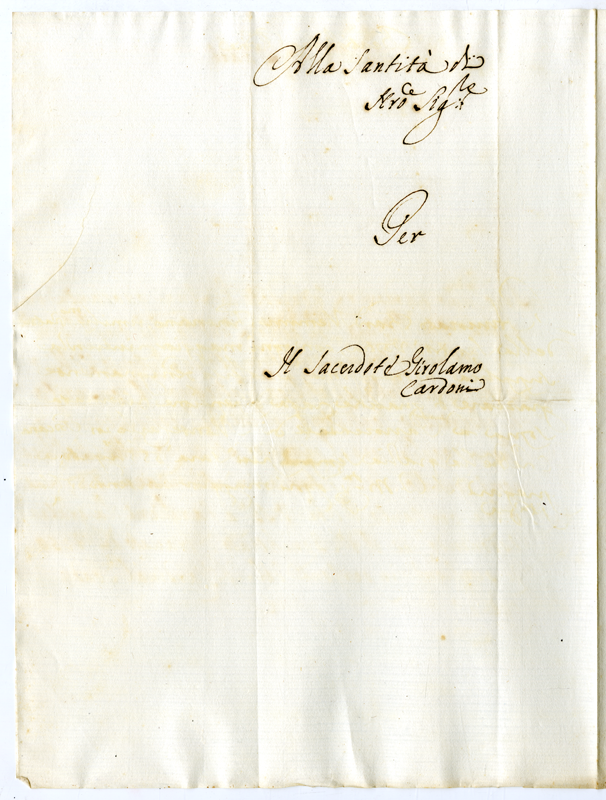 Alla Santità di
Nro Sigre
Per
Il Sacerdote Girolamo
Cardoni